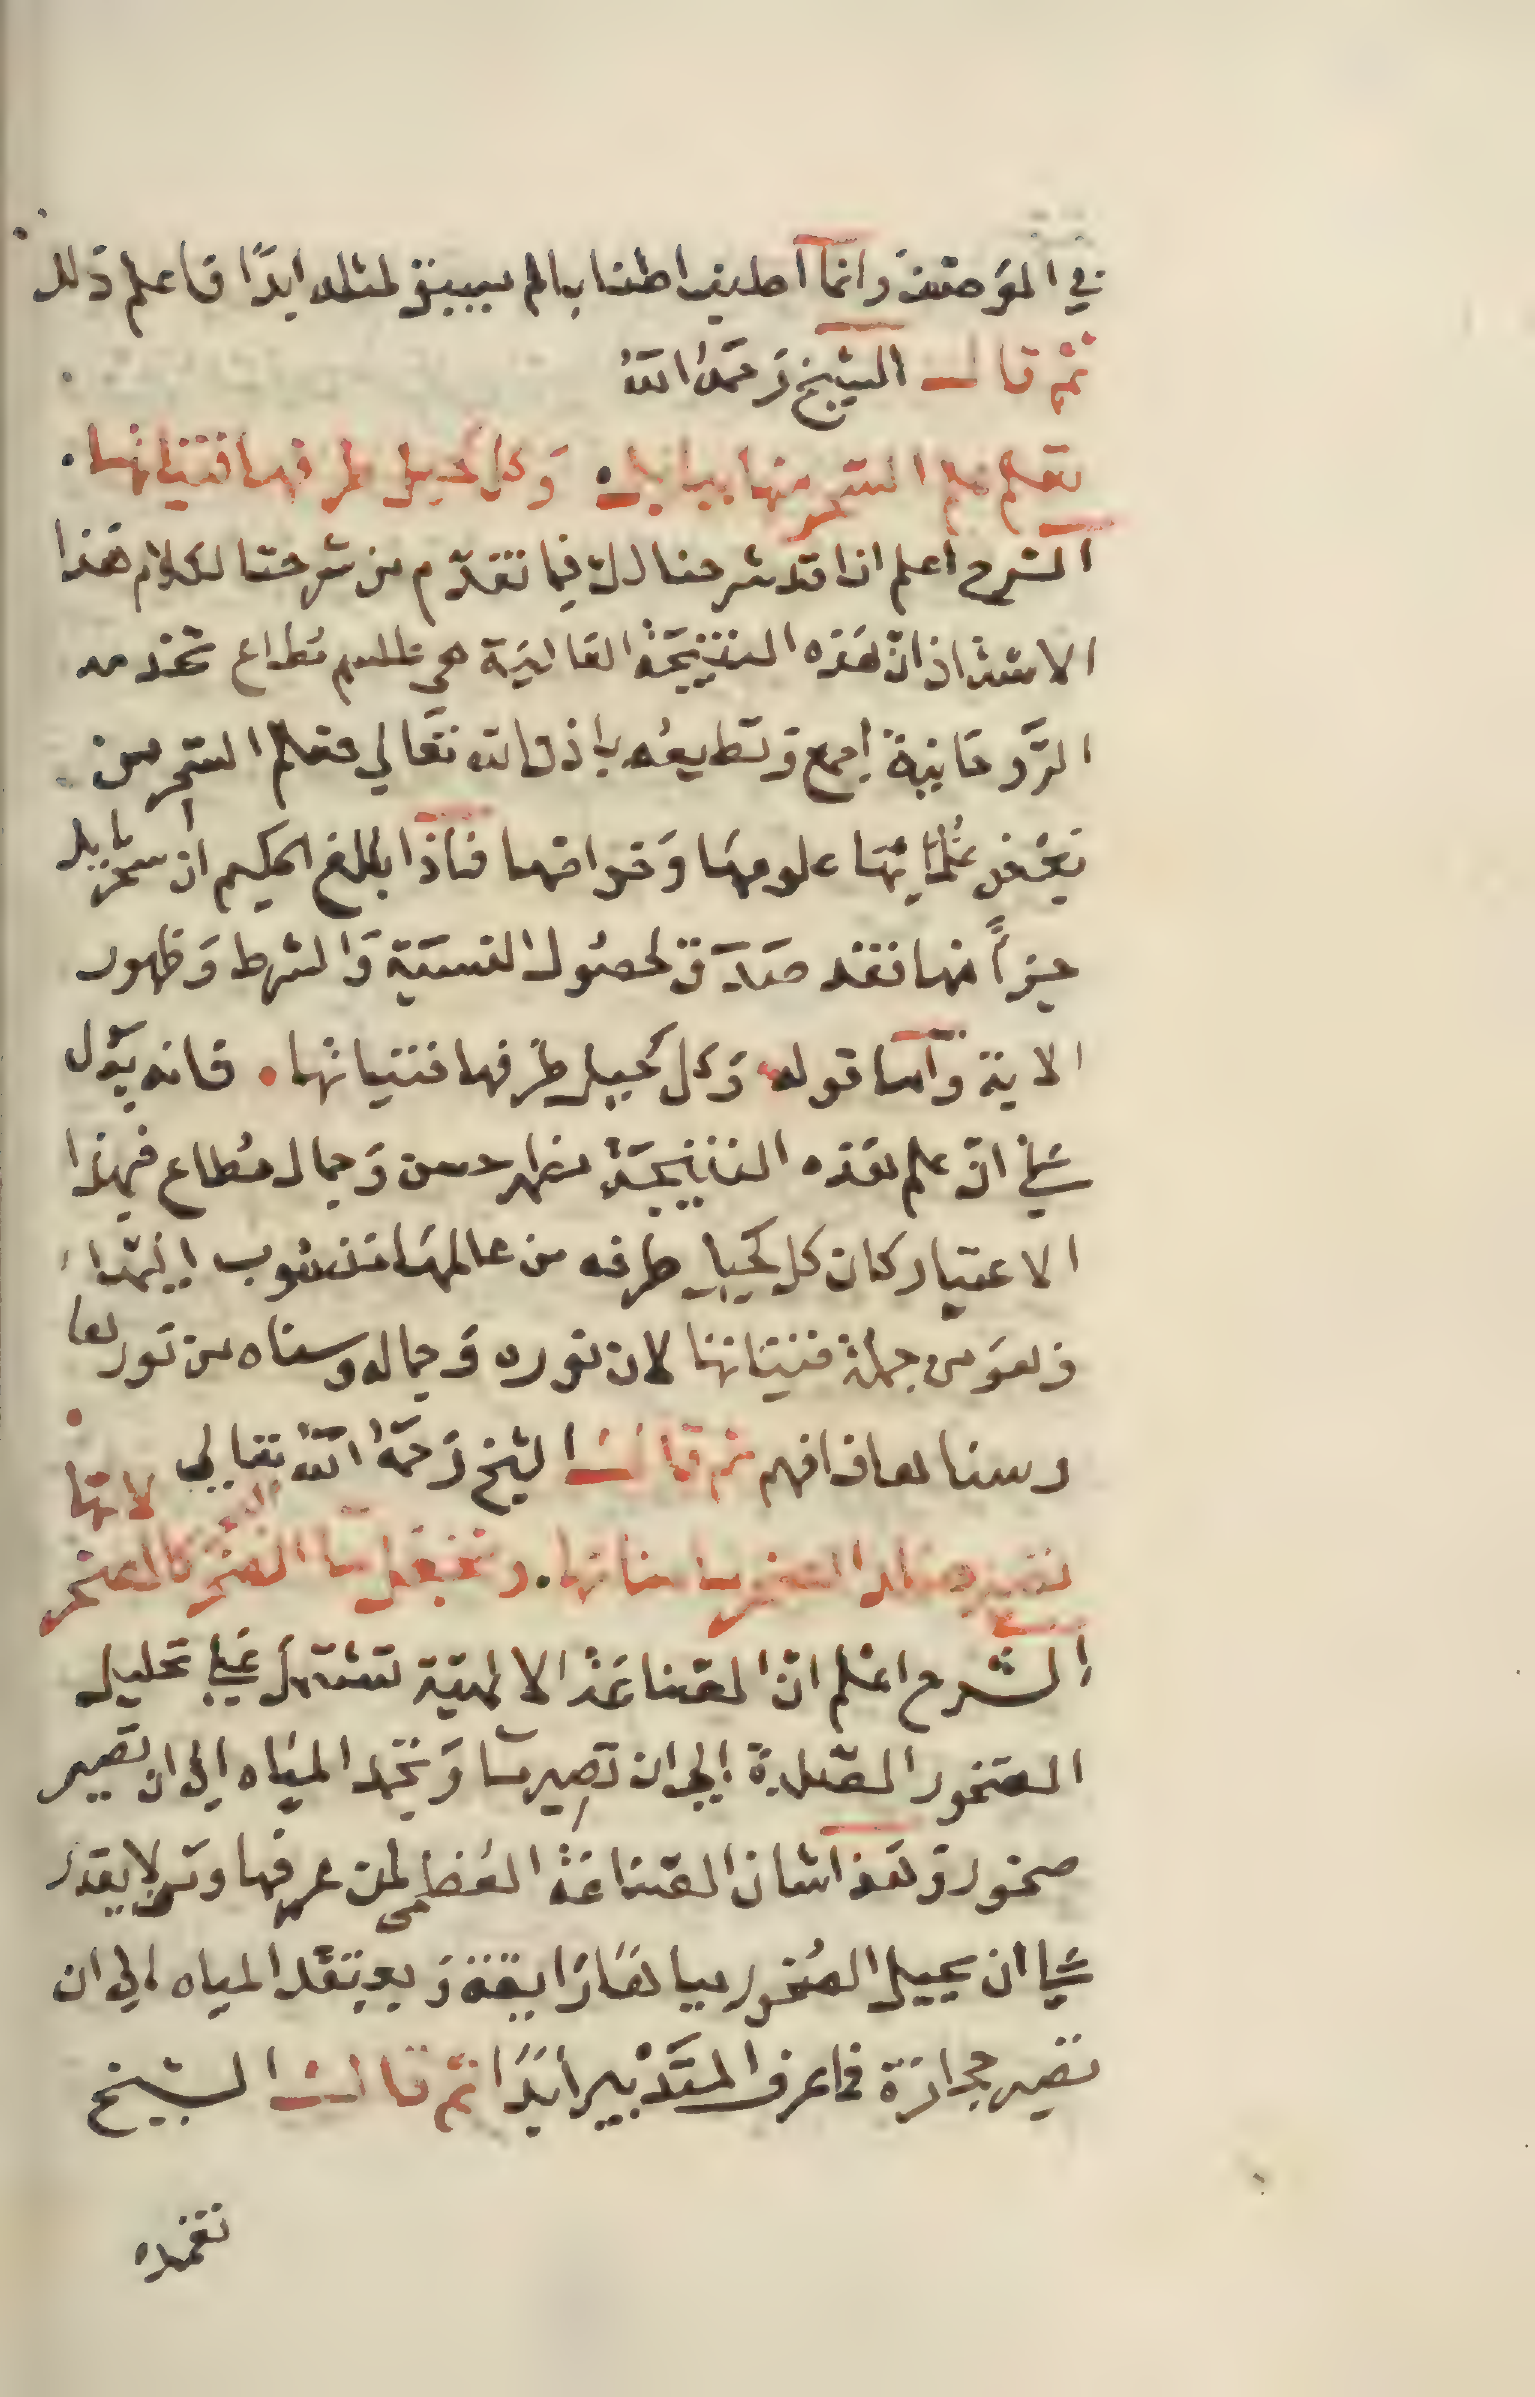 في الموضعين وانما اطنب اطنابا لم يسبق لمثله ابدًا فاعلم ذلك
ثم قال الشيخ رَحمَهُ اللهُ
تعلم علم السحر منها ببابل وَكل كحيل طرفها فتياتها
الشرح اعلم انا قد شرحنا لك فيما تقدّم من شرحنا لكلام هذا
الاستاذ انّ هَذه النتيجَة الغالية هي طلسم مُطاع تخدمه
الرّوحَانية اجمع وَتطيعُه باذن الله تعَالي فعلم السحر من
بَعْض علومهَا وَخواصها فاذا بلغ الحكيم ان سحر ببابل
جزأً منها فقد صَدَق لحصُول النسبَة وَالشرط وَظهور
الاية وَاما قوله وَكل كحيل طرفها فتياتها فانه يقول
انّ علم هَذه النتيجَة مظهر حسن وَجمال مُطاع فبهذا
الاعتبار كان كل كحيل طرفه من عالمهَا منسُوب اليهَا
وَهوَ من جملة فتياتها لان نوره وَجماله وسناه من نورها
وسناها فافهم ثم قال الشيخ رَحمَهُ اللهُ تعَالي
لانها
تصير مياه الصخر وتجعَل مآء كالصخر
الشرح اعْلم انّ الصّناعَة الالهيّة تشتمل عَلي تحليل
الصخور الصّلدة إلي ان تصير مآ وَتجمّد الميَاه الي ان تصير
صخور وَهَذا شان الصّناعَة العُظمى لمن عرفها وَمن لا يقدر
عَلي ان يحيل الصُخور مياهَا رَايقة وَيعقد المياه الي ان
تصير حجَارَة فما عرف التَدْبير ابَدًا ثم قال الشيخ